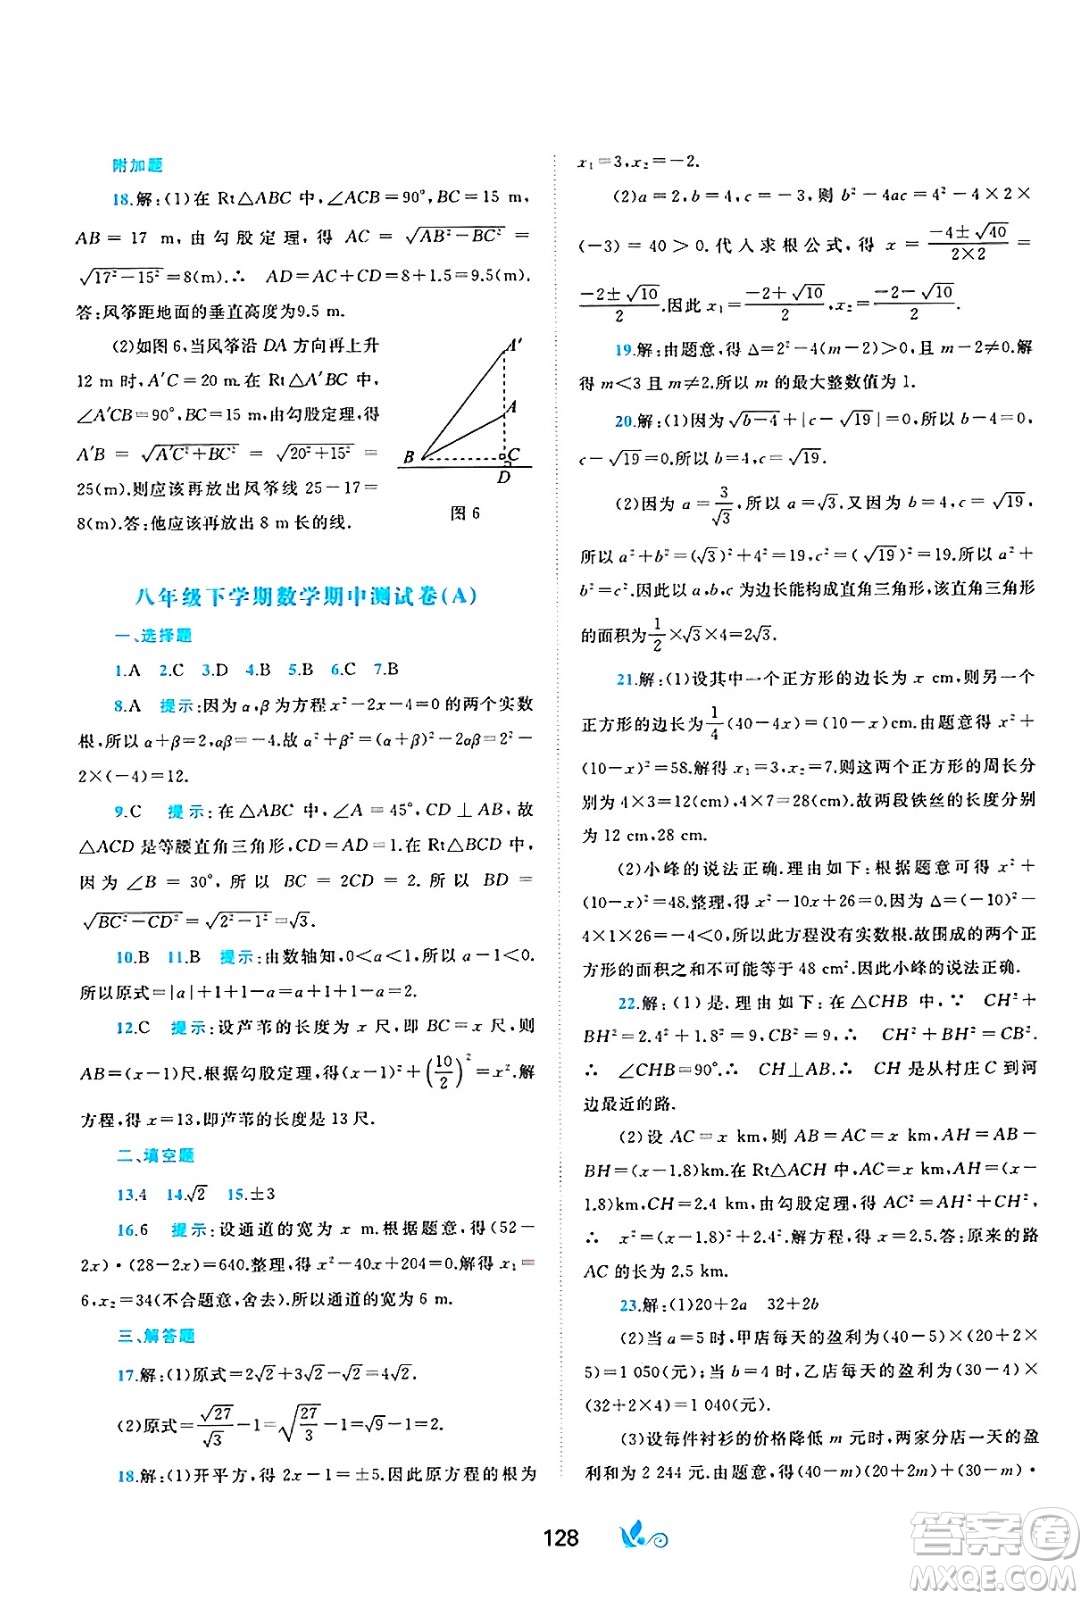 附加题
18.解:(1)在 Rt△ABC 中,∠ACB=90°,BC=15 m,
AB = 17 m, 由勾股定理, 得 AC = √(AB²−BC²) =
√(17²−15²)=8(m).∴ AD=AC+CD=8+1.5=9.5(m).
答:风筝距地面的垂直高度为9.5 m.
(2)如图 6,当风筝沿 DA 方向再上升
12 m 时,A′C=20 m.在 Rt△A′BC 中,
∠A′CB=90°,BC=15 m,由勾股定理,得
A′B = √(A′C²+BC²) = √(20²+15²) =
25(m).则应该再放出风筝线 25−17=
8(m).答:他应该再放出 8 m 长的线.
A′
A
B
C
D
图 6
八年级下学期数学期中测试卷(A)
一、选择题
1.A 2.C 3.D 4.B 5.B 6.C 7.B
8.A 提示:因为 α,β 为方程 x²−2x−4=0 的两个实数
根,所以 α+β=2,αβ=−4.故 α²+β²=(α+β)²−2αβ=2²−
2×(−4)=12.
9.C 提示:在△ABC 中,∠A=45°,CD⊥AB,故
△ACD 是等腰直角三角形,CD=AD=1.在 Rt△BCD 中,
因为 ∠B = 30°, 所以 BC = 2CD = 2. 所以 BD =
√(BC²−CD²)=√(2²−1²)=√3.
10.B 11.B 提示:由数轴知,0<a<1,所以 a−1<0.
所以原式=|a|+1+1−a=a+1+1−a=2.
12.C 提示:设芦苇的长度为 x 尺,即 BC=x 尺,则
AB=(x−1)尺.根据勾股定理,得(x−1)²+(10/2)²=x².解
方程,得 x=13,即芦苇的长度是 13 尺.
二、填空题
13.4 14.√2 15.±3
16.6 提示:设通道的宽为 x m.根据题意,得(52−
2x)·(28−2x)=640.整理,得 x²−40x+204=0.解得 x₁=
6,x₂=34(不合题意,舍去).所以通道的宽为 6 m.
三、解答题
17.解:(1)原式=2√2+3√2−2√2=3√2.
(2)原式=√27/√3−1=√(27/3)−1=√9−1=2.
18.解:(1)开平方,得 2x−1=±5.因此原方程的根为
x₁=3,x₂=−2.
(2)a=2,b=4,c=−3,则 b²−4ac=4²−4×2×
(−3)=40>0.代入求根公式,得 x=(−4±√40)/(2×2)=
(−2±√10)/2.因此 x₁=(−2+√10)/2,x₂=(−2−√10)/2.
19.解:由题意,得 Δ=2²−4(m−2)>0 且 m−2≠0.解
得 m<3 且 m≠2.所以 m 的最大整数值为 1.
20.解:(1)因为 √(b−4)+|c−√19|=0,所以 b−4=0,
c−√19=0.所以 b=4,c=√19.
(2)因为 a=3/√3,所以 a=√3.又因为 b=4,c=√19,
所以 a²+b²=(√3)²+4²=19,c²=(√19)²=19.所以 a²+
b²=c².所以 a,b,c 为边长能构成直角三角形,此三角形
的面积为 1/2×√3×4=2√3.
21.解:(1)设其中一个正方形的边长为 x cm,则另一个
正方形的边长为 1/4(40−4x)=(10−x)cm.由题意得 x²+
(10−x)²=58.解得 x₁=3,x₂=7.则这两个正方形的周长
分别为 4×3=12(cm),4×7=28(cm).故两段铁丝的长度分别
为 12 cm,28 cm.
(2)小峰的说法正确.理由如下:根据题意可得 x²+
(10−x)²=48.整理,得 x²−10x+26=0.因为 Δ=(−10)²−
4×1×26=−4<0,所以此方程没有实数根.故围成的两个正
方形的面积之和不可能等于 48 cm².因此小峰的说法正确.
22.解:(1)是.理由如下:在△CHB 中,∵ CH²+
BH²=2.4²+1.8²=9,CB²=9,∴ CH²+BH²=CB².
∴ ∠CHB=90°.∴ CH⊥AB.∴ CH 是从村庄 C 到河
边最近的路.
(2)设 AC=x km,则 AB=AC=x km,AH=AB−
BH=(x−1.8)km.在 Rt△ACH 中,AC=x km,AH=(x−
1.8)km,CH=2.4 km,由勾股定理,得 AC²=AH²+CH²,
∴ x²=(x−1.8)²+2.4².解方程,得 x=2.5.答:原来的路
AC 的长为 2.5 km.
23.解:(1)20+2a 32+2b
(2)当 a=5 时,甲店每天的盈利为(40−5)×(20+2×
5)=1 050(元);当 b=4 时,乙店每天的盈利为(30−4)×
(32+2×4)=1 040(元).
(3)设每件衬衫的价格降低 m 元时,两家分店一天的盈
利和为 2 244 元.由题意,得(40−m)(20+2m)+(30−m)·
128
答案卷
MXQE.COM